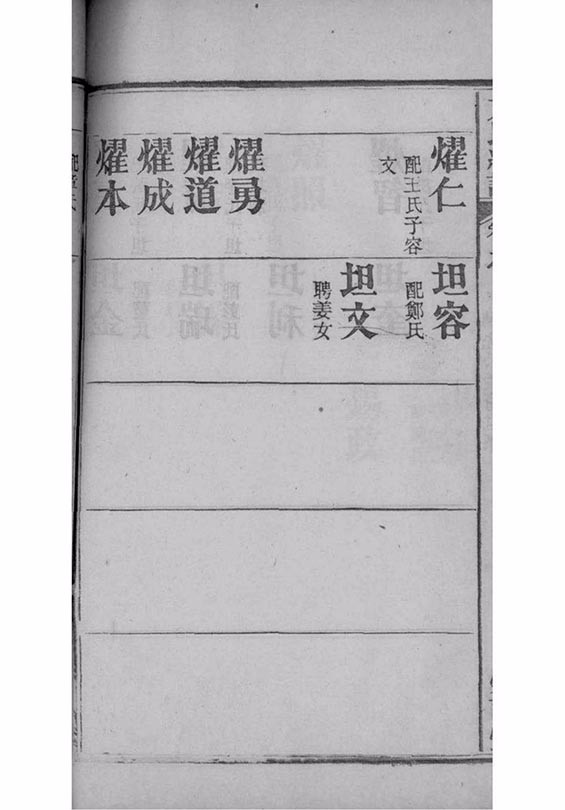 燿仁
配王氏子容
文
燿勇
燿道
燿成
燿本
坦容
配鄭氏
坦文
聘姜女